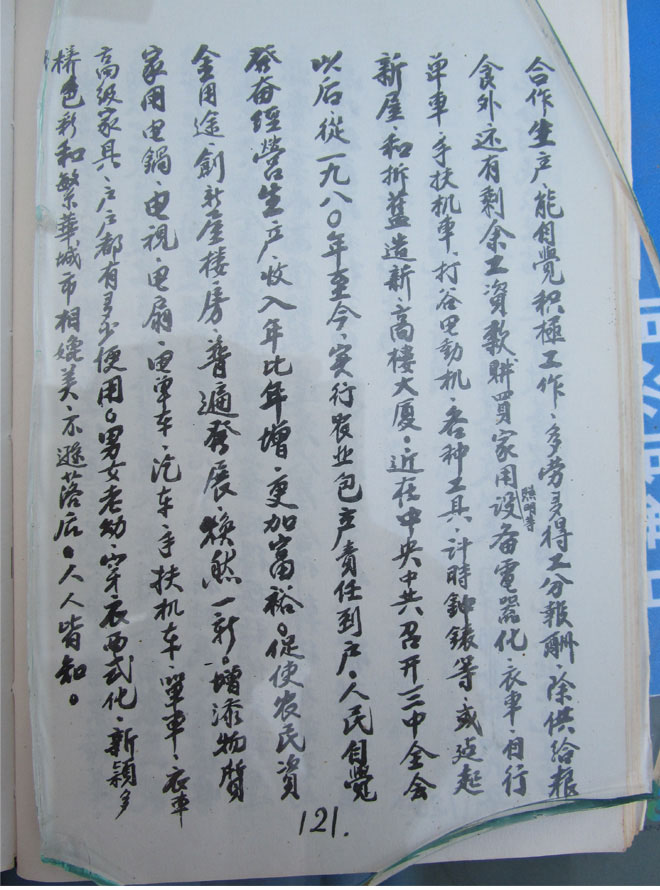 合作生产、能自覺积極工作、多劳多得工分報酬、除供给粮
食外还有剩余工資款購買家用設备電器化、衣車、自行
照明等
单車、手扶机車、打谷电動机、各种工具、計時鈡錶等、或建起
新屋、和拆舊造新、高樓大厦。近在中央中共召开三中全会
以后、從一九八〇年至今、实行农业包产責任到户、人民自覺
發奋經營生产、收入年比年增、更加富裕。促使农民資
金用途、創新屋楼房、普遍發展、煥然一新。增添物質
家用电鍋、电視、电扇、电单车、汽车、手扶机车、單車、衣車
高级家具、户户都有多少便用。男女老幼、穿衣西式化、新穎多
樣色彩和繁華城市相媲美、亦遜落后。人人皆知。
121.